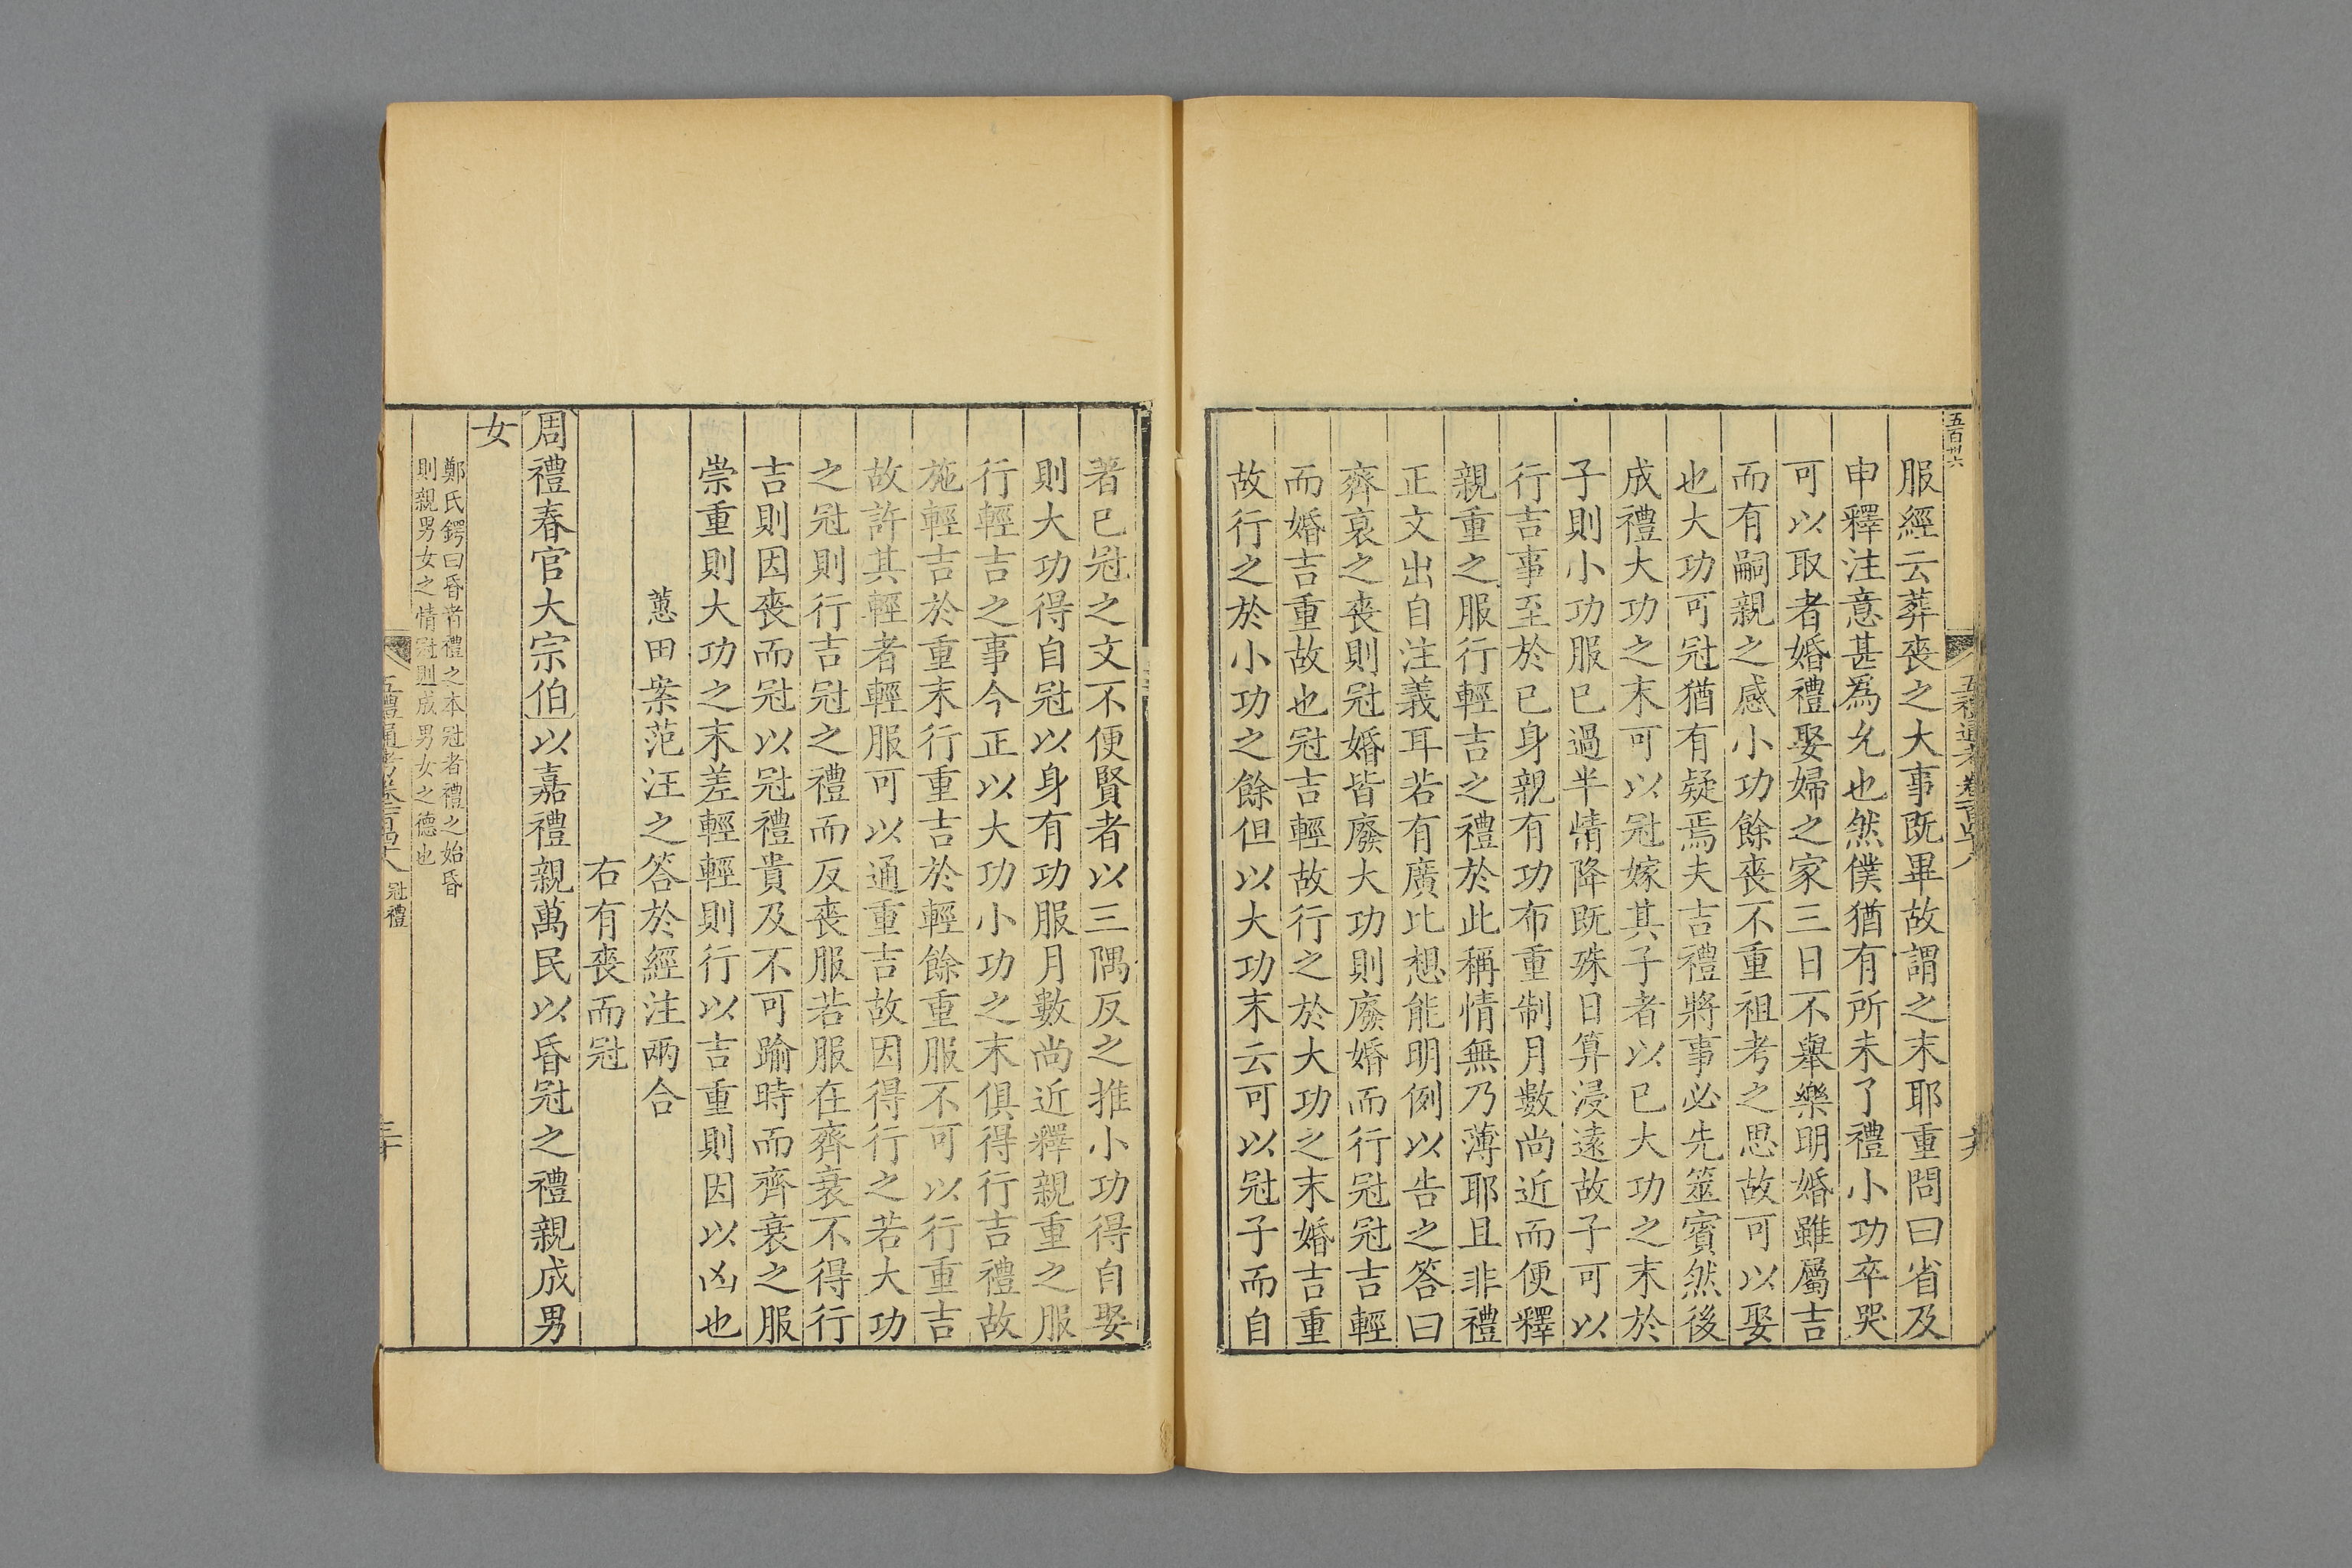 五百卅六
服經云葬喪之大事既畢故謂之末耶重問曰省及
申釋注意甚為允也然僕猶有所未了禮小功卒哭
可以取者婚禮娶婦之家三日不舉樂明婚雖屬吉
而有嗣親之感小功餘喪不重祖考之思故可以娶
也大功可冠猶有疑焉夫吉禮將事必先筮賓然後
成禮大功之末可以冠嫁其子者以已大功之末於
子則小功服已過半情降既殊日算浸遠故子可以
行吉事至於已身親有功布重制月數尚近而便釋
親重之服行輕吉之禮於此稱情無乃薄耶且非禮
正文出自注義耳若有廣比想能明例以告之答曰
齊衰之喪則冠婚皆廢大功則廢婚而行冠冠吉輕
而婚吉重故也冠吉輕故行之於大功之末婚吉重
故行之於小功之餘但以大功末云可以冠子而自
著已冠之文不便賢者以三隅反之推小功得自娶
則大功得自冠以身有功服月數尚近釋親重之服
行輕吉之事今正以大功小功之末俱得行吉禮故
施輕吉於重末行重吉於輕餘重服不可以行重吉
故許其輕者輕服可以通重吉故因得行之若大功
之冠則行吉冠之禮而反喪服若服在齊衰不得行
吉則因喪而冠以冠禮貴及不可踰時而齊衰之服
崇重則大功之末差輕輕則行以吉重則因以凶也
蕙田案范汪之答於經注兩合
右有喪而冠
周禮春官大宗伯以嘉禮親萬民以昏冠之禮親成男
女
鄭氏鍔曰昏者禮之本冠者禮之始昏
則親男女之情冠則成男女之德也
冠禮